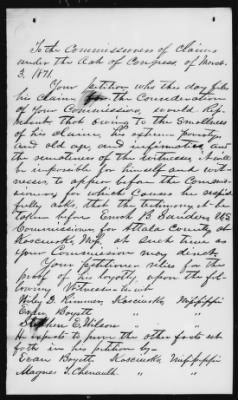 To the Commissioners of Claims
under the Act of Congress of March
3, 1871.
Your petitioner who this day files
his claim for the Consideration
of Your Commission, would Rep-
resent that owing to the Smallness
of his claims, his extreme poverty,
and old age, and infirmities and
the remoteness of the witnesses, it will
be impossible for himself and wit-
nesses to appear before the Commis-
sioners, for which Cause he respect-
fully asks, that the testimony, to be
taken before Enoch B. Sanders US
Commissioner for Attala County at
Kosciusko, Miss, at such time as
Your Commission may direct.
Your petitioner relies for the
proof of his loyalty, upon the fol-
lowing Witnesses to wit
Wiley D. Kimmer, Kosciusko, Mississippi
Boyett " "
Stephen E. Wilson " "
He expects to prove the other facts set
forth in his petition by—
Evan Boyett Kosciusko, Mississippi
Magnes T. Chenault " "